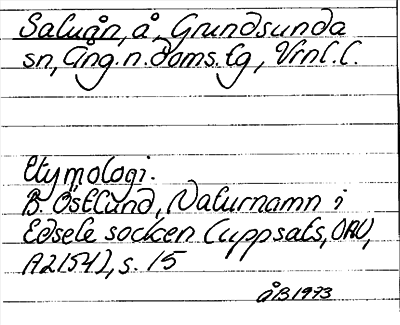 Saluån, å, Grundsunda
sn, Ång. n. doms. lg, Vrnl. l.
Etymologi.
B. Östlund, Naturnamn i
Edsele socken (uppsats, OAU,
A2154), s. 15
ÅB 1973